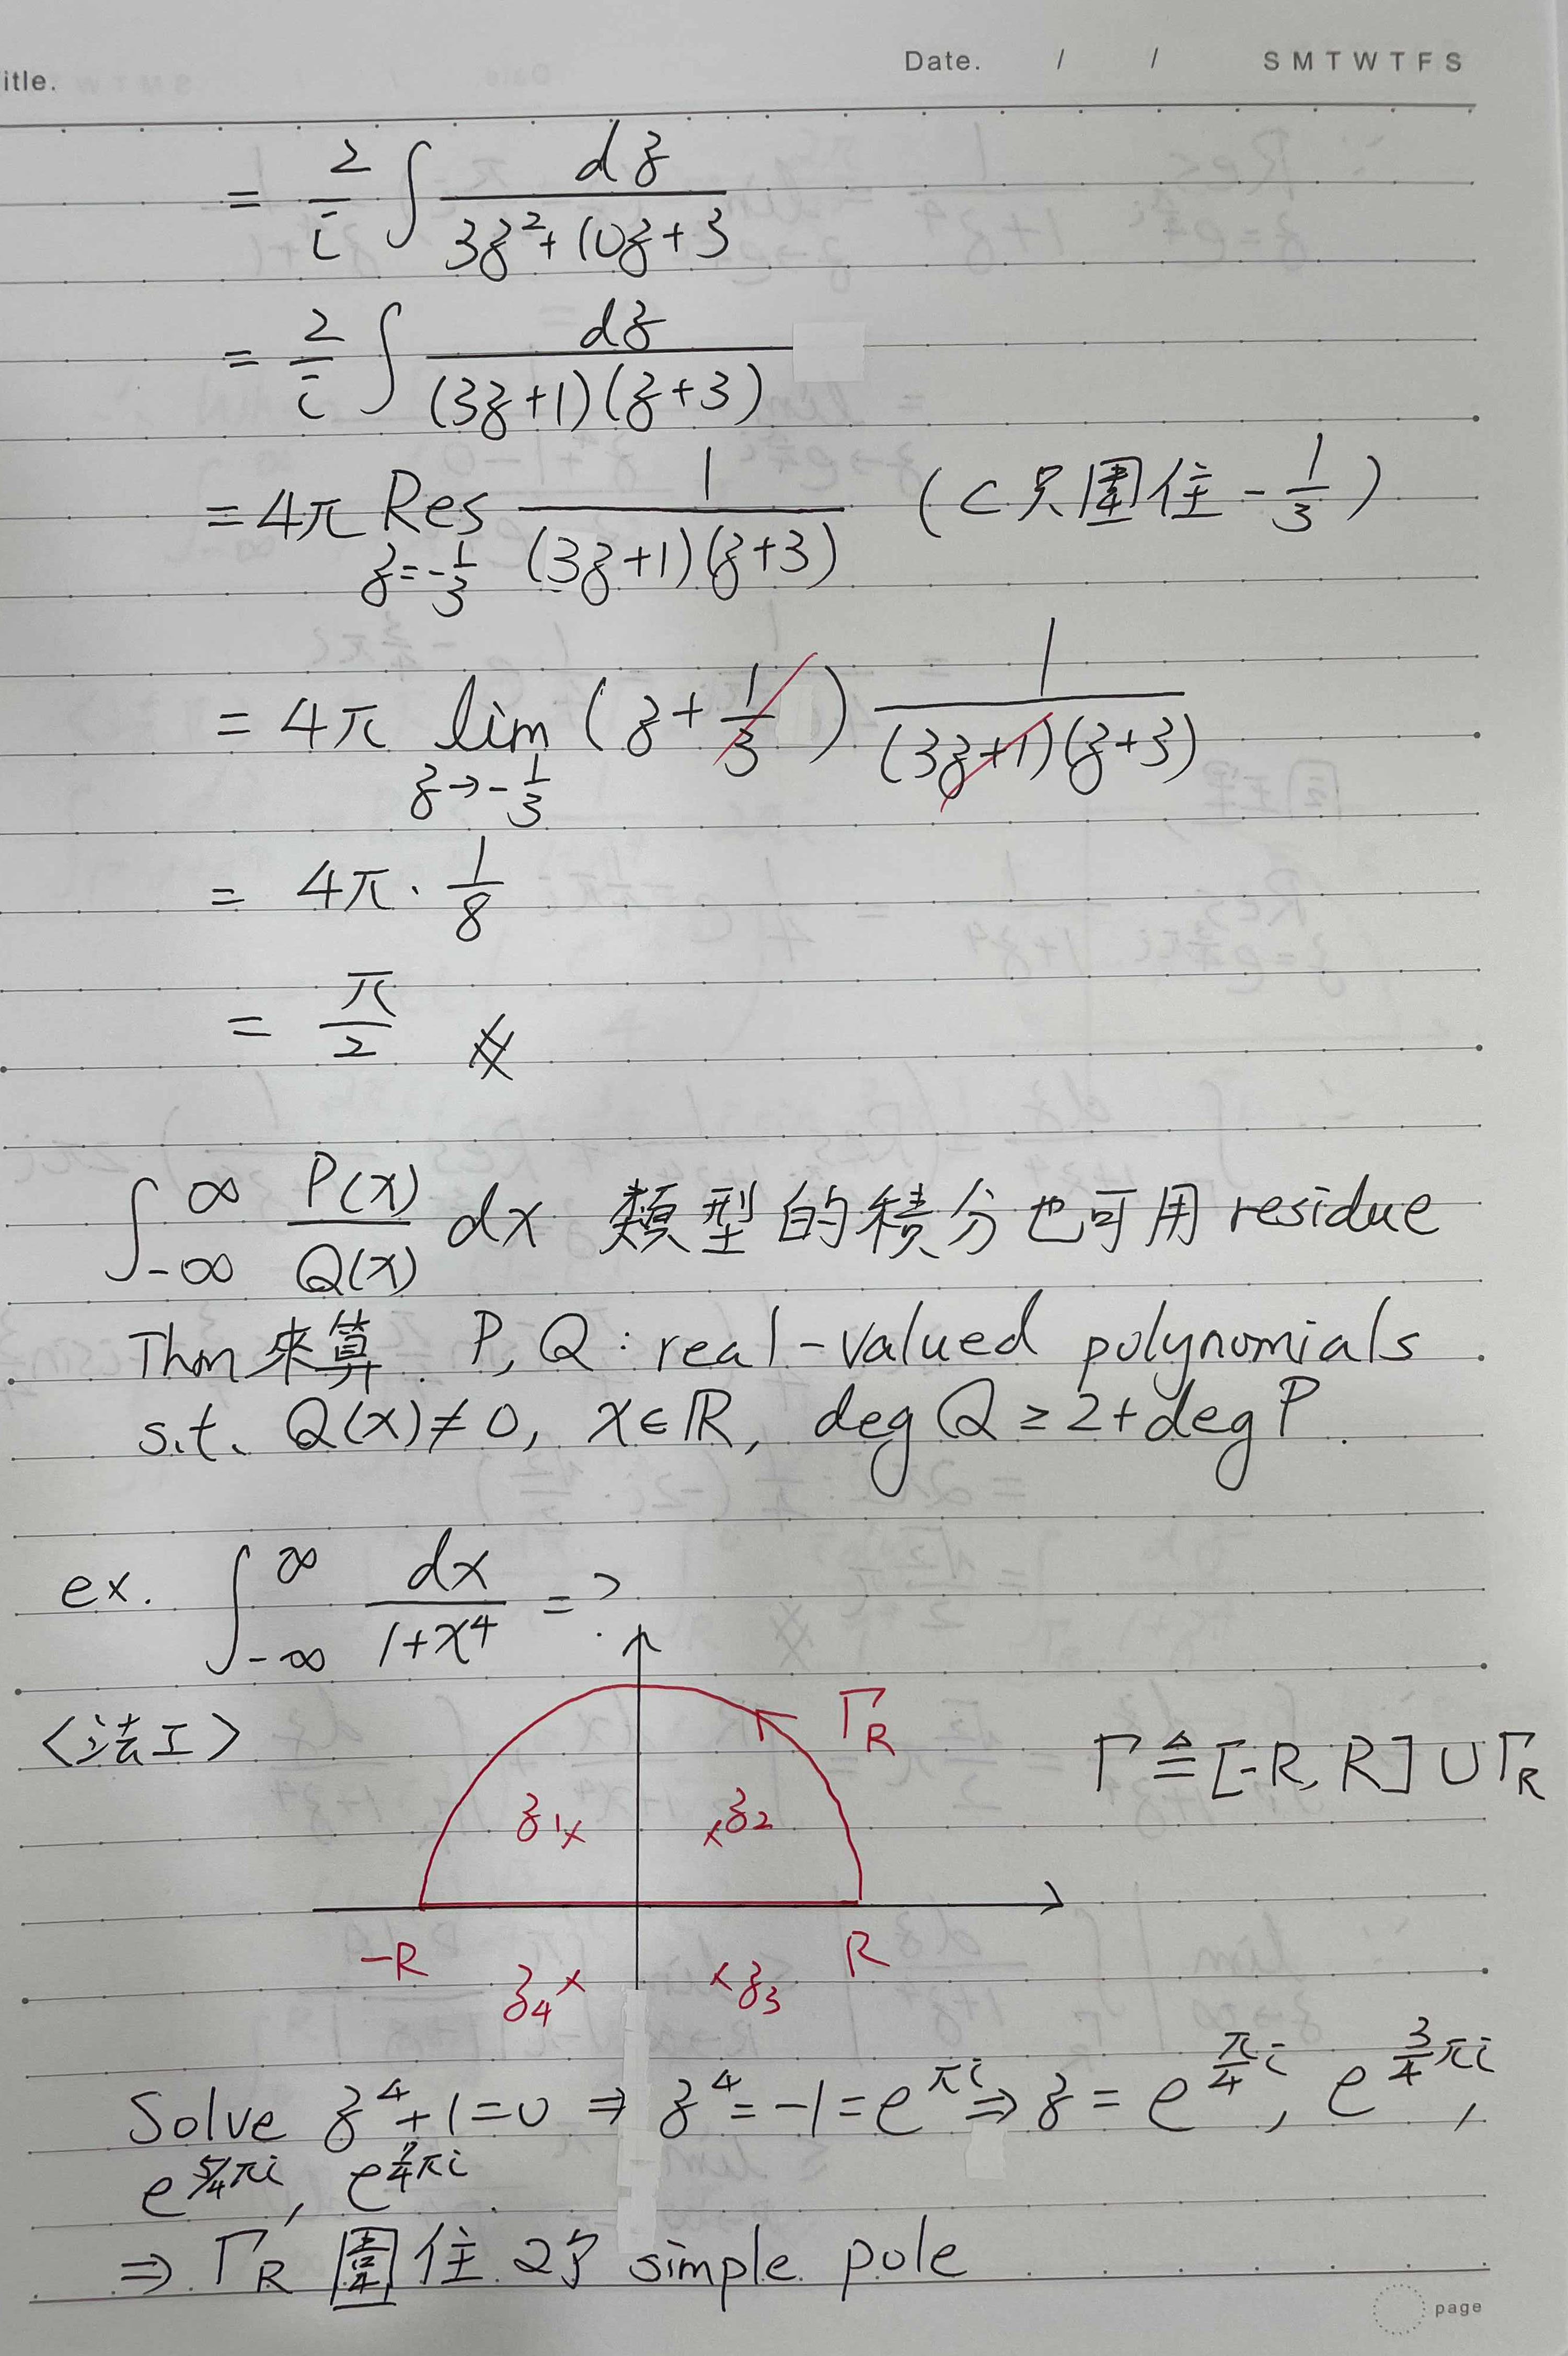 itle.
Date. / / S M T W T F S
= 2/i ∫ dz/(3z²+10z+3)
= 2/i ∫ dz/((3z+1)(z+3))
= 4π Res_{z=-1/3} 1/((3z+1)(z+3)) (C只圍住 -1/3)
= 4π lim_{z→-1/3} (z+1/3) 1/((3z+1)(z+3))
= 4π · 1/8
= π/2
∫_{-∞}^{∞} P(x)/Q(x) dx 類型的積分也可用 residue
Thm 來算. P, Q : real-valued polynomials
s.t. Q(x)≠0, x∈ℝ, deg Q ≥ 2+deg P.
ex. ∫_{-∞}^{∞} dx/(1+x⁴) = ?
<法I>
Γ_R
Γ ≜ [-R, R] ∪ Γ_R
z₁ z₂
-R R
z₄ z₃
Solve z⁴+1=0 ⇒ z⁴=-1=e^{πi} ⇒ z = e^{π/4 i}, e^{3/4 πi},
e^{5/4 πi}, e^{7/4 πi}.
⇒ Γ_R 圍住 2個 simple pole
page